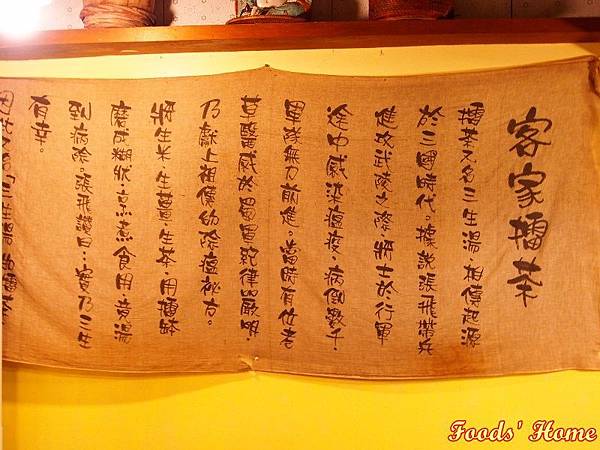 客家擂茶
擂茶又名三生湯,相傳起源
於三國時代。據說張飛帶兵
進攻武陵之際,將士於行軍
途中感染瘟疫,病倒數千,
軍隊無力前進。當時有位老
草醫感於蜀軍紀律嚴明,
乃獻上祖傳的除瘟祕方。
將生米、生薑、生茶,用擂缽
磨成糊狀,烹煮食用,竟湯
到病除。張飛讚曰:實乃三生
有幸。
因此又名「三生湯」
Foods' Home